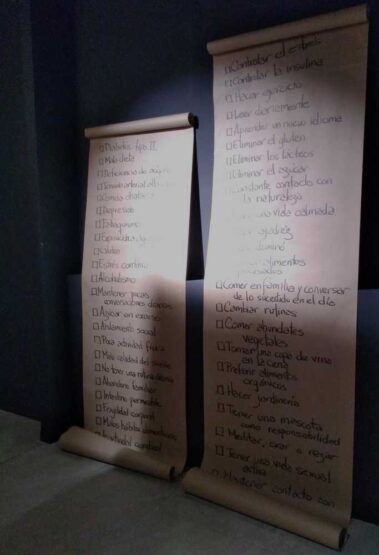 ☐ Diabetes tipo II
☐ Mala dieta
☐ Deficiencia de
☐ Tensión arterial alta
☐ Comida chatarra
☐ Depresión
☐ Tabaquismo
☐ Ruido
☐ Estrés continuo
☐ Alcoholismo
☐ Mantener pocas
conversaciones diarias
☐ Azúcar en exceso
☐ Aislamiento social
☐ Poca actividad física
☐ Mala calidad del sueño
☐ No tener una rutina diaria
☐ Abandono familiar
☐ Intestino permeable
☐ Fragilidad corporal
☐ Malos hábitos alimenticios
☐ Controlar el estrés
☐ Controlar la insulina
☐ Hacer ejercicio
☐ Leer diariamente
☐ Aprender un nuevo idioma
☐ Eliminar el gluten
☐ Eliminar los lácteos
☐ Eliminar el azúcar
constante contacto con
la naturaleza
una vida calmada
ajedrez
dominó
alimentos
☐ Comer en familia y conversar
de lo sucedido en el día
☐ Cambiar rutinas
☐ Comer abundates
vegetales
☐ Tomar una copa de vino
en la cena
☐ Preferir alimentos
orgánicos
☐ Hacer jardinería
☐ Tener una mascota
como responsabilidad
☐ Meditar, orar o rezar
☐ Tener una vida sexual
activa
☐ Mantener contacto con